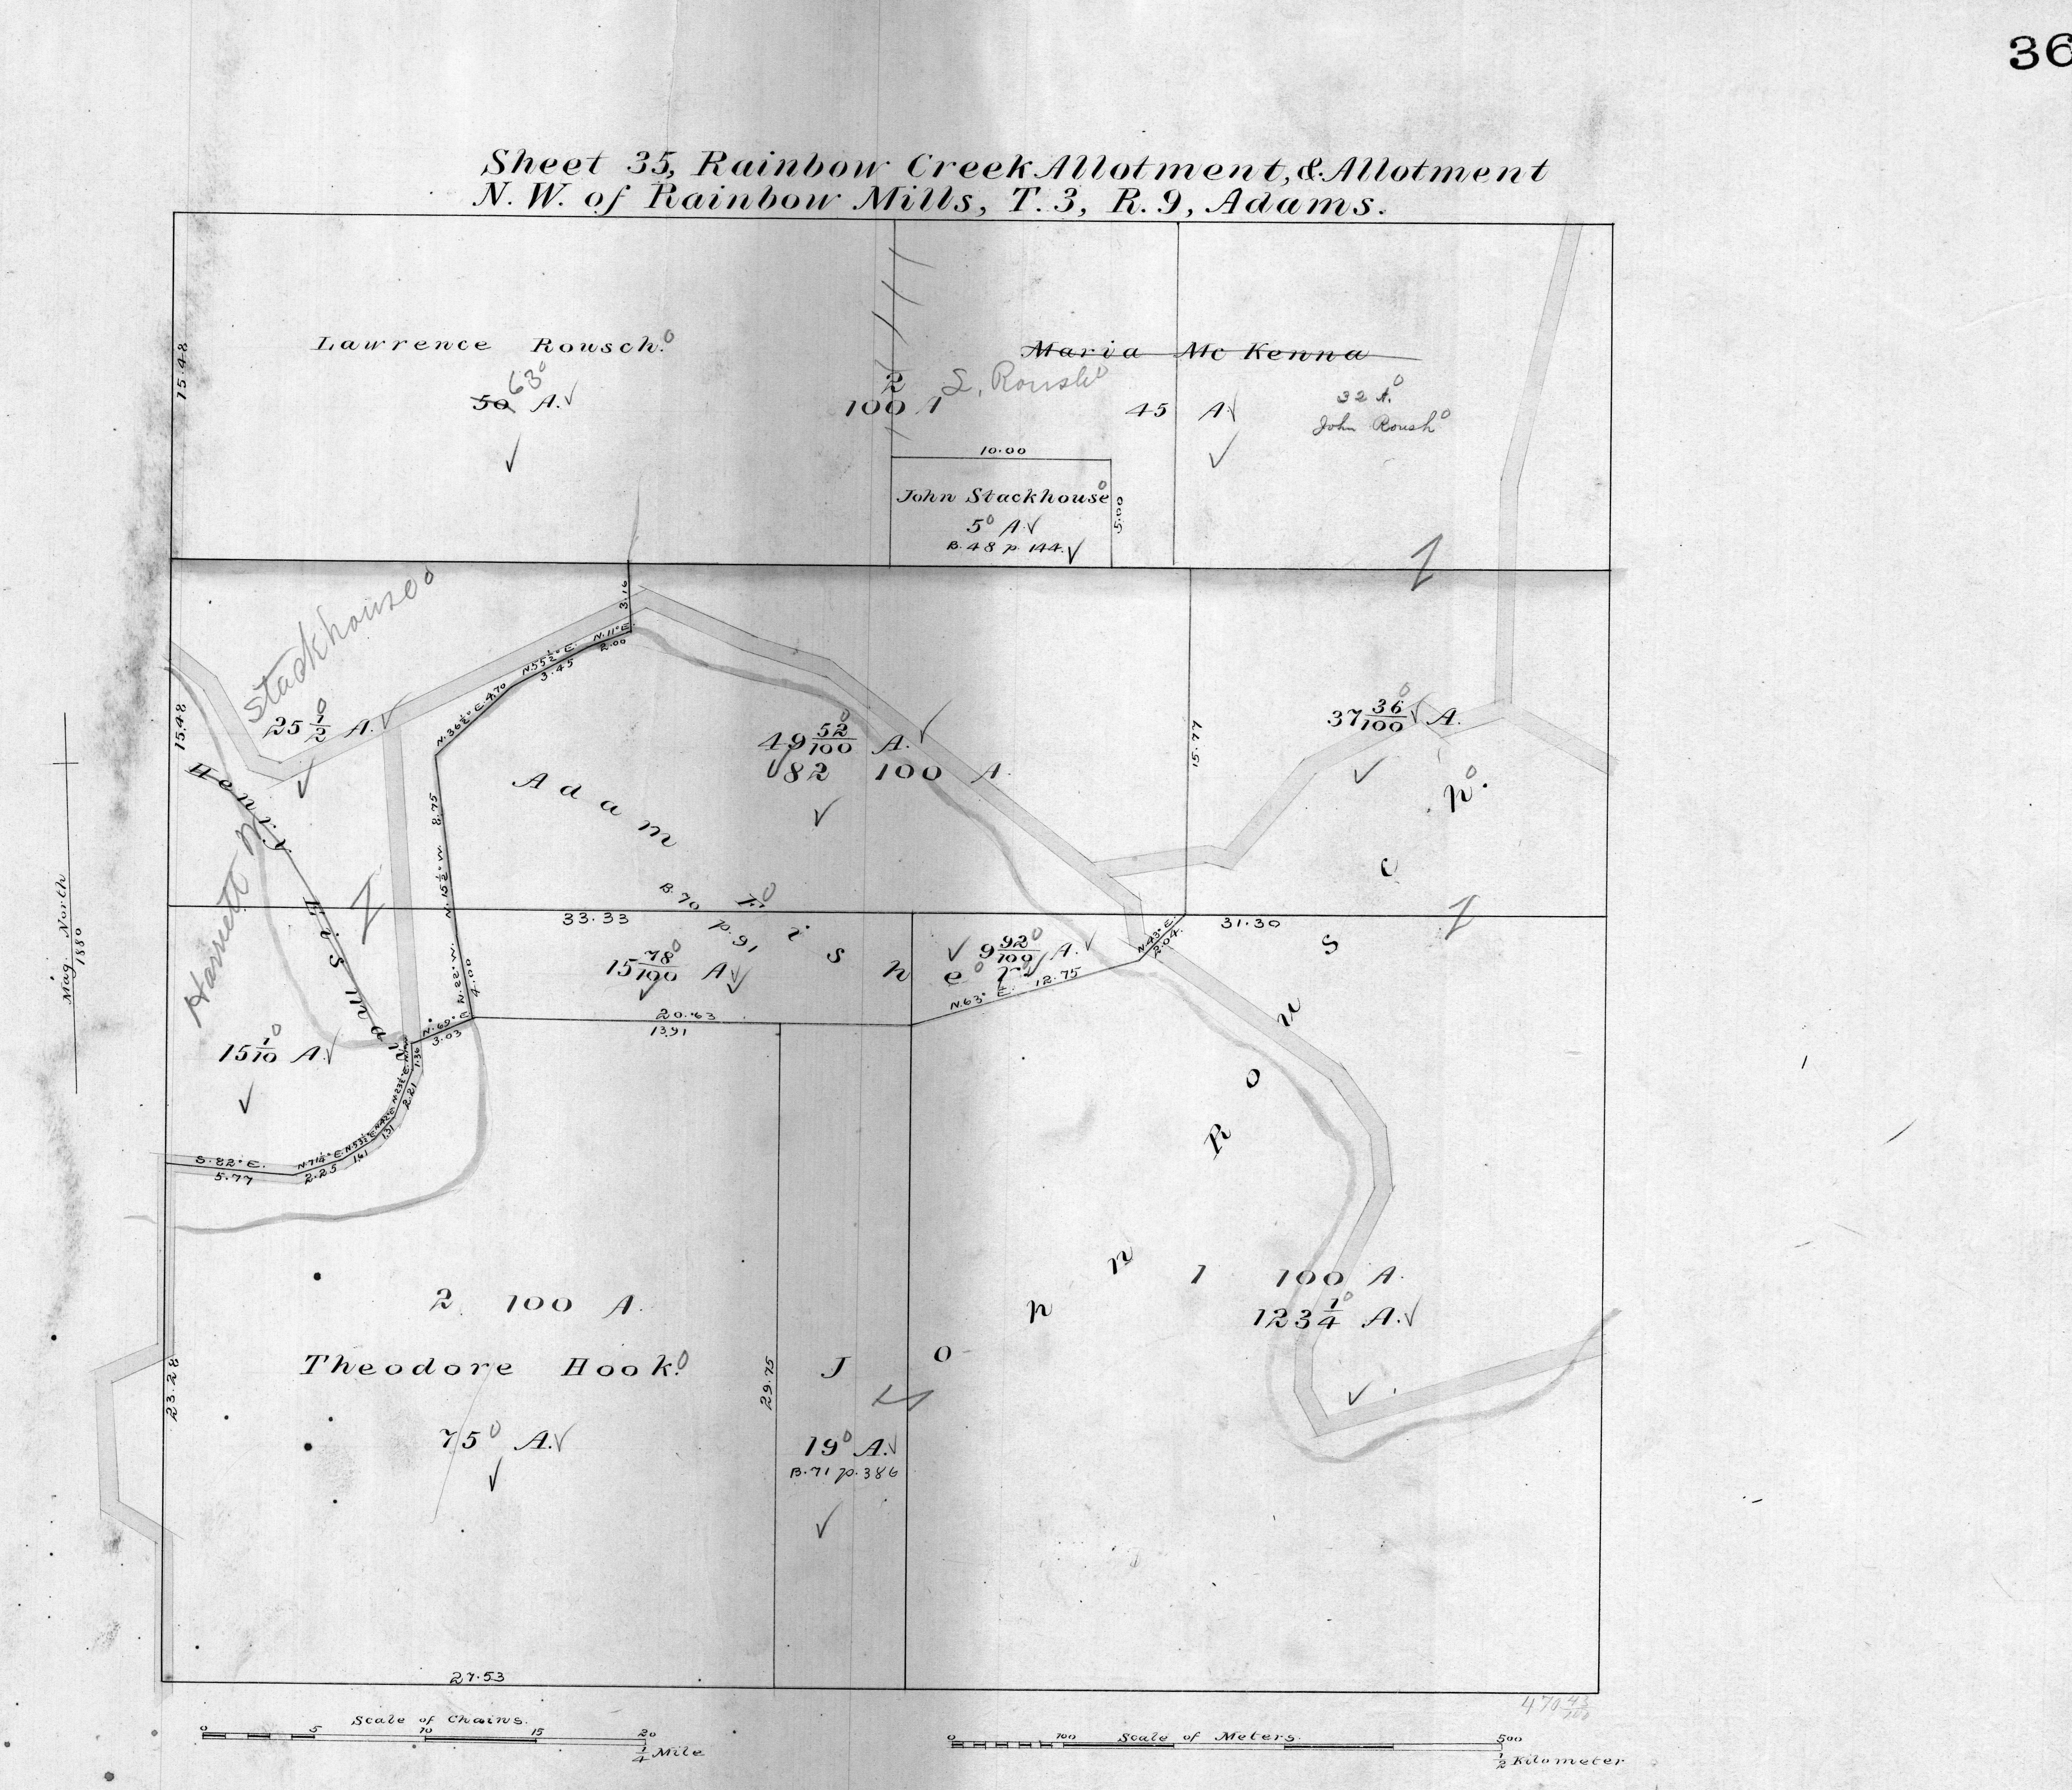 36
Sheet 35, Rainbow Creek Allotment, & Allotment
N. W. of Rainbow Mills, T. 3, R. 9, Adams.
15.48
Lawrence Rousch.
63
50 A.
2
100 A
L. Roush
Maria Mc Kenna
45 A
32 A.
John Roush
10.00
John Stackhouse
5 A.
B. 48 p. 144.
5.00
Stackhouse
Harriett M
15.48
25 1/2 A.
Henry
3.16
N. 11° E.
2.00
N. 55 1/2° E.
3.45
N. 36 1/2° E. 4.70
8.75
N. 15 1/2° W.
N. 22° W.
4.00
N. 69° E
3.03
Adam Fisher
B. 70 p. 91
49 52/100 A.
82 100 A.
15.77
37 36/100 A.
33.33
31.30
15 78/100 A
9 92/100 A.
N. 43° E.
2.04
N. 63° E. 12.75
20.63
13.91
15 1/10 A.
1.36
N. 23 1/2° E.
2.21
N. 42° E
1.31
N. 53 1/2° E
1.61
N. 71 1/4° E
2.25
S. 82° E.
5.77
2 100 A.
Theodore Hook.
75 A.
23.28
27.53
29.75
John Rousch.
19 A.
B. 71 p. 386
1 100 A.
123 1/4 A.
Mag. North
1880
470 43/100
Scale of Chains.
0 5 10 15 20
1/4 Mile
Scale of Meters.
0 100 500
1/2 Kilometer